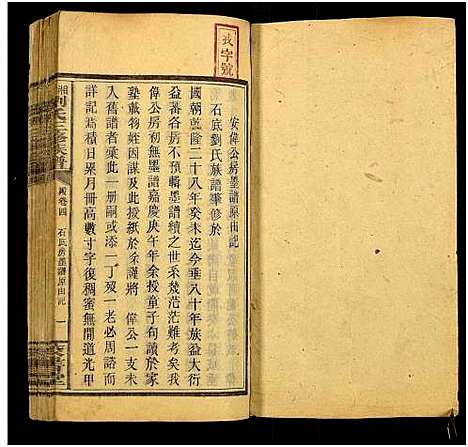 安偉公房墨譜原由記
石底劉氏族譜肇修於
國朝乾隆二十八年癸未迄今垂八十年族益大衍
益蕃各房不預輯墨譜續之世系幾茫茫難考矣我
偉公房初無墨譜嘉慶庚午年余授童子句讀於家
塾載物姪因謀及此授紙於余謹將 偉公一支
入舊譜者彙此一册嗣或添一丁歿一老必周諮而
詳記焉積日累月冊高數寸字復稠蜜無閒道光甲
字號
劉氏
卷四
石底房墨譜原由記
一
堂